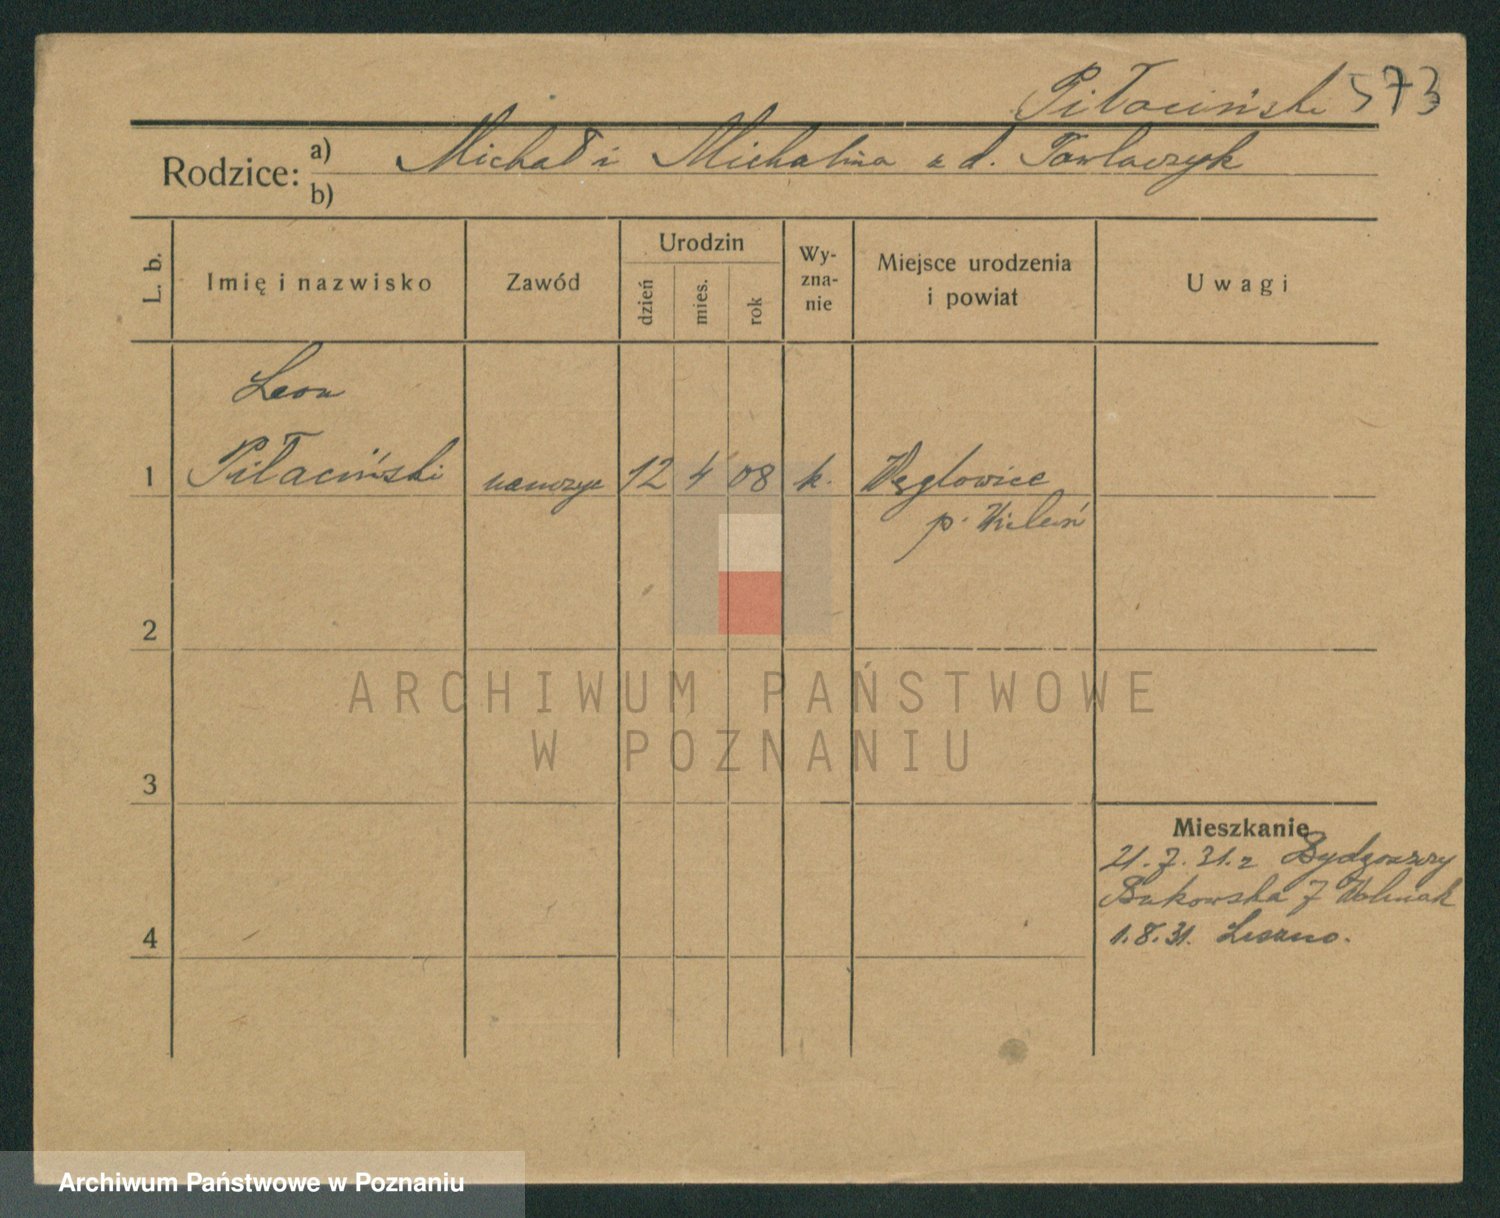 Piłaciński 573
Rodzice: a) Michał i Michalina z d. Pawlaczyk
b)
L. b.
Imię i nazwisko
Zawód
Urodzin
dzień
mies.
rok
Wy-
zna-
nie
Miejsce urodzenia
i powiat
Uwagi
Leon
1 Piłaciński 12 4 08 k. Węglowice
p. Wieluń
2
3
4
Mieszkanie
21.7.31. z Bydgoszczy
Bukowska 7 Wolniak
1.8.31. Leszno.
ARCHIWUM PAŃSTWOWE
W POZNANIU
Archiwum Państwowe w Poznaniu